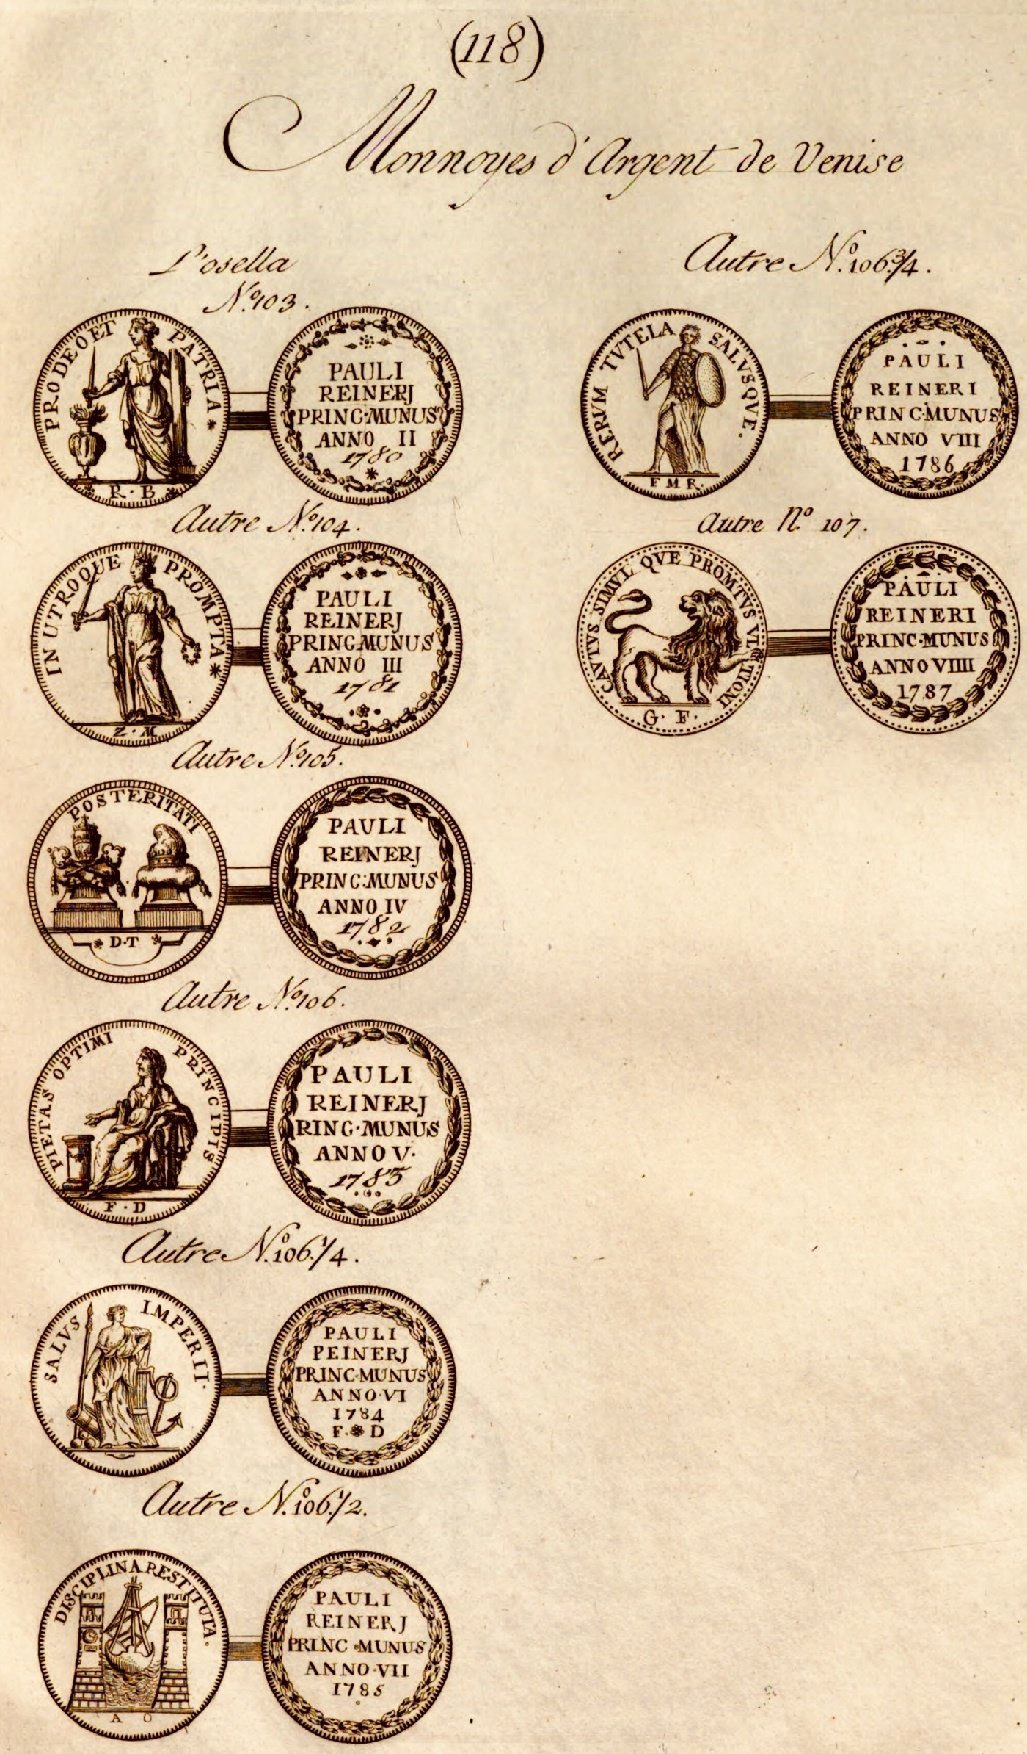 (118)
Monnoyes d'Argent de Venise
L'osella
N.º 103.
PRO DEO ET PATRIA *
R · B
PAULI
REINERJ
PRINC·MUNUS
ANNO II
1780
Autre N.º 104.
IN UTROQUE PROMPTA *
Z · M
PAULI
REINERJ
PRINC·MUNUS
ANNO III
1781
Autre N.º 105.
POSTERITATI
* D·T *
PAVLI
REINERJ
PRINC·MUNUS
ANNO IV
1782
Autre N.º 106.
PIETAS OPTIMI PRINCIPIS
F · D
PAULI
REINERJ
RING·MUNUS
ANNO V·
1783
Autre N.º 106.1/4.
SALVS IMPERII·
PAULI
PEINERJ
PRINC·MUNUS
ANNO·VI
1784
F·*D
Autre N.º 106.1/2.
DISCIPLINA RESTITUTA.
A O
PAULI
REINERJ
PRINC·MUNUS
ANNO·VII
1785
Autre N.º 106.3/4.
RERUM TVTELA SALVSQVE.
F M R.
PAULI
REINERI
PRINC·MUNUS
ANNO VIII
1786
Autre N.º 107.
CAVTVS SIMVL QVE PROMTVS VLTIONI
G· F·
PAULI
REINERI
PRINC·MUNUS
ANNO VIIII
1787